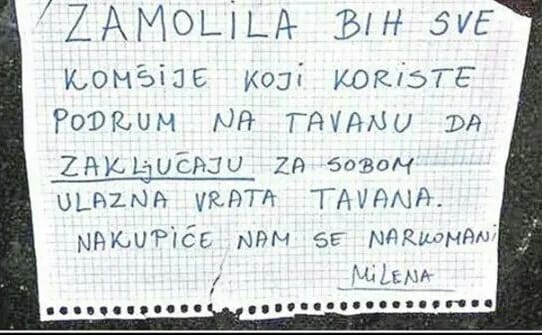 ZAMOLILA BIH SVE
KOMŠIJE KOJI KORISTE
PODRUM NA TAVANU DA
ZAKLjUČAJU ZA SOBOM
ULAZNA VRATA TAVANA.
NAKUPIĆE NAM SE NARKOMANI
MiLENA